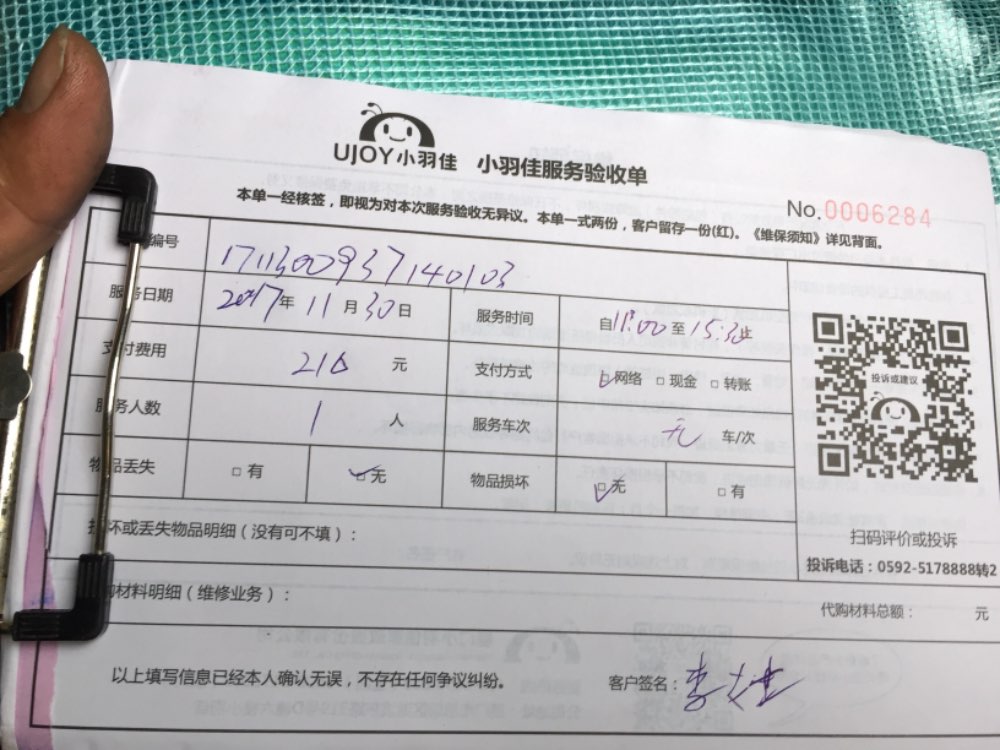 UJOY小羽佳 小羽佳服务验收单
No.0006284
本单一经核签，即视为对本次服务验收无异议。本单一式两份，客户留存一份(红)。《维保须知》详见背面。
编号 1711300937140103
服务日期 2017年 11月30日 服务时间 自11:00至15:30止
支付费用 210 元 支付方式 ☑网络 □现金 □转账
服务人数 1 人 服务车次 无 车/次
物品丢失 □有 ☑无 物品损坏 ☑无 □有
投诉或建议
扫码评价或投诉
投诉电话：0592-5178888转2
损坏或丢失物品明细（没有可不填）：
购材料明细（维修业务）：
代购材料总额： 元
以上填写信息已经本人确认无误，不存在任何争议纠纷。 客户签名：